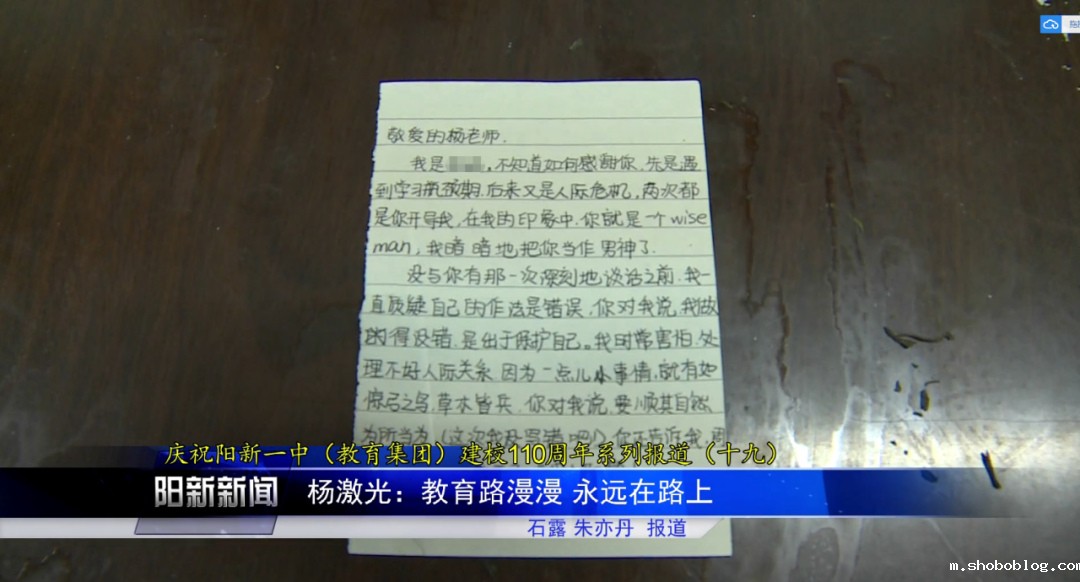 敬爱的杨老师.
我是 ,不知道如何感谢你.先是遇
到学习瓶颈期.后来又是人际危机,两次都
是你开导我,在我的印象中.你就是一个wise
man,我暗暗地把你当作男神了.
没与你有那一次深刻地谈话之前.我一
直质疑自己的作法是错误.你对我说,我做
的得没错.是出于保护自己。我时常害怕.处
理不好人际关系.因为一点儿小事情.就有如
惊弓之鸟,草木皆兵.你对我说,要顺其自然
为所当为
庆祝阳新一中(教育集团)建校110周年系列报道(十九)
阳新新闻 杨激光:教育路漫漫 永远在路上
石露 朱亦丹 报道
m.shoboblog.com